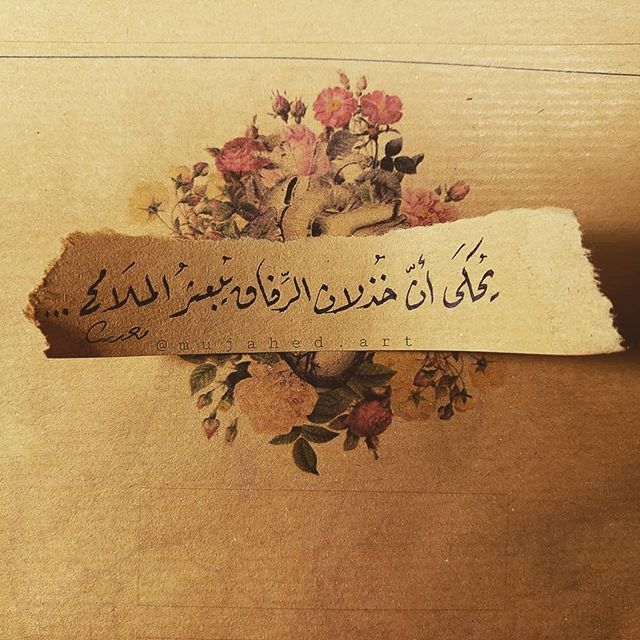 يُحْكَى أنّ خُذلان الرِّفاق يُبعثرُ الملَامح ...
@mujahed.art